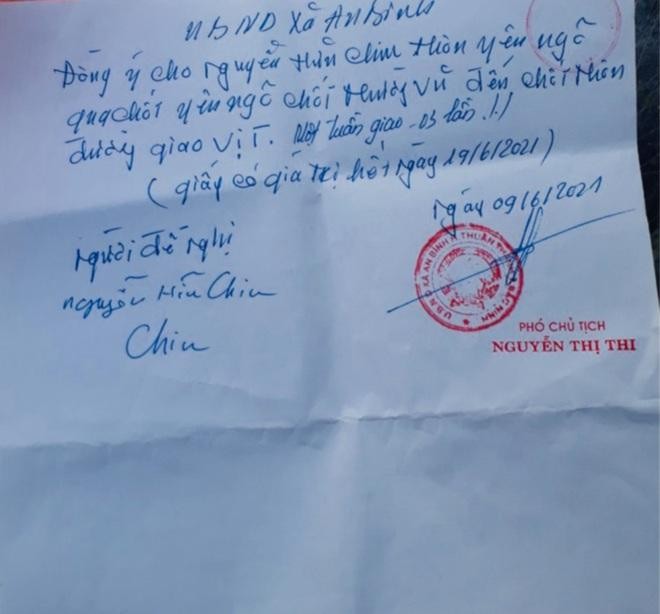 UBND Xã An Bình
Đồng ý cho Nguyễn Hữu Chiu thôn yên ngô
qua chốt yên ngô chốt thường vũ đến chốt thôn
đường giao vịt. Một tuần giao 03 lần !/
(giấy có giá trị hết ngày 19/6/2021)
ngày 09/6/2021
người đề nghị
nguyễn Hữu Chiu
Chiu
U.B.N.D XÃ AN BÌNH H. THUẬN THÀNH BẮC NINH
PHÓ CHỦ TỊCH
NGUYỄN THỊ THI